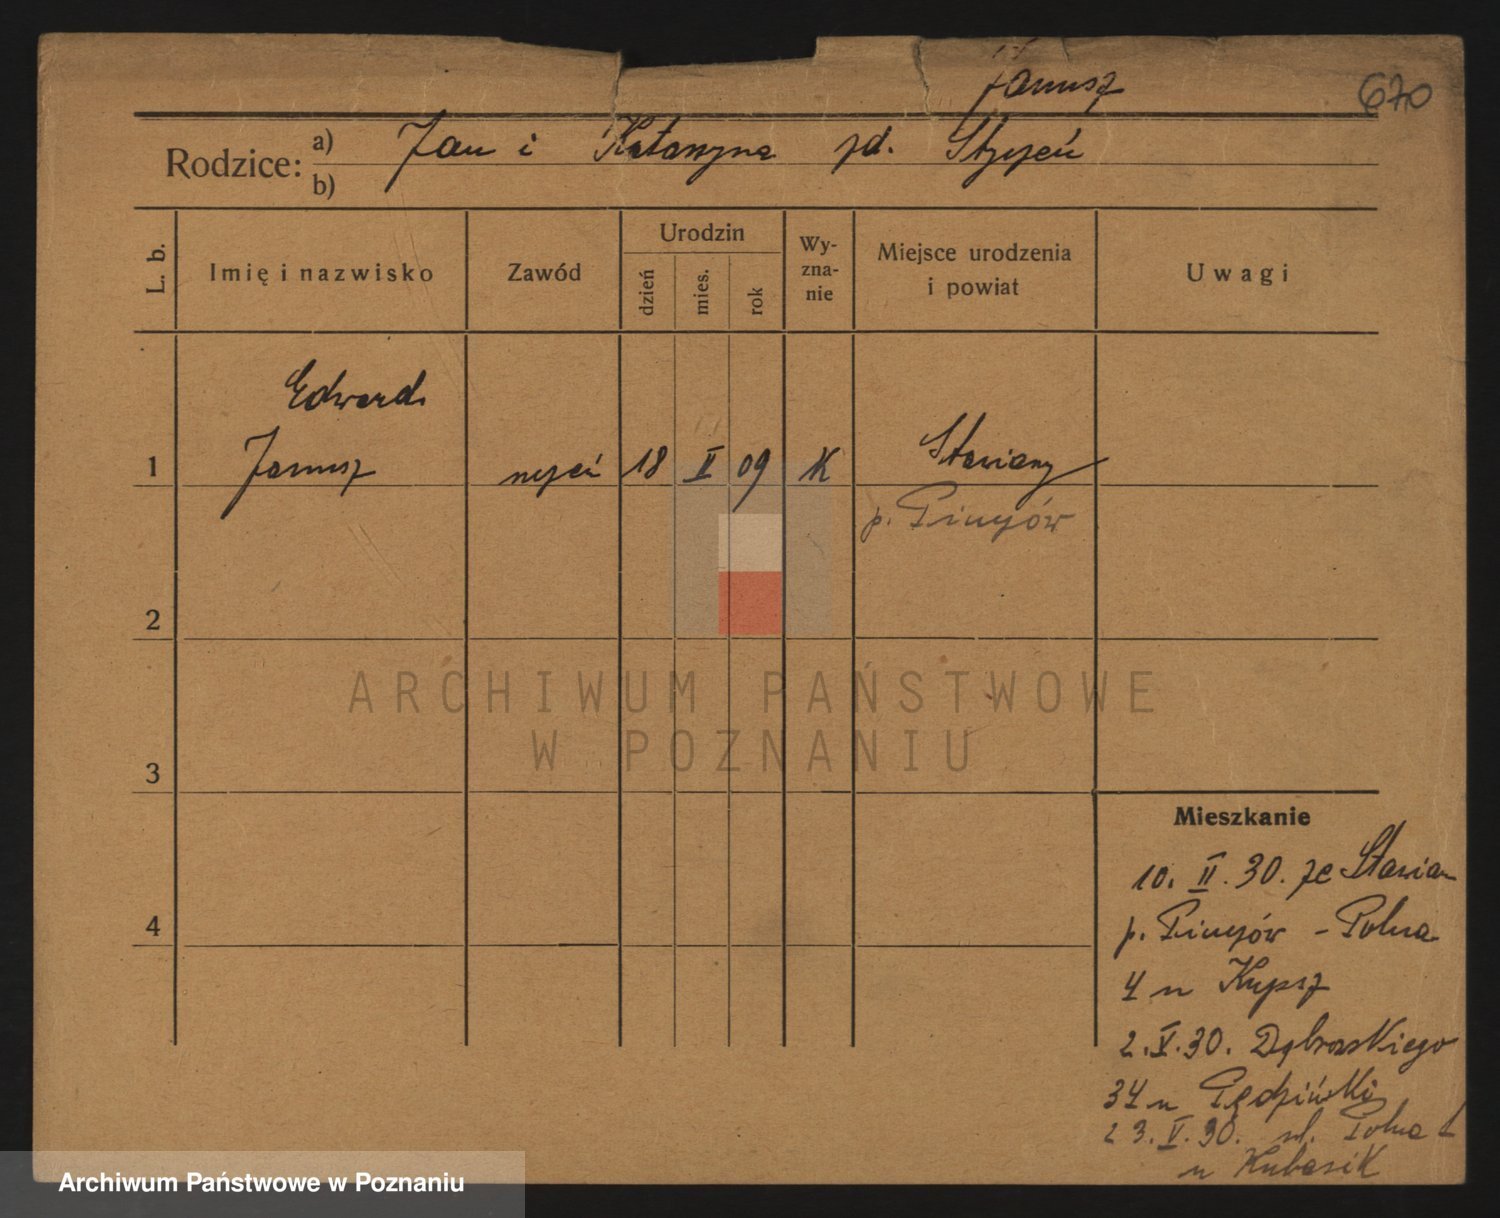 Janusz
670
Rodzice: a) Jan i Katarzyna zd. Styczeń
b)
L. b. Imię i nazwisko Zawód Urodzin dzień mies. rok Wy-zna-nie Miejsce urodzenia i powiat Uwagi
Edward
1 Janusz 18 II 09 K Stawiany
p. Pinczów
2
ARCHIWUM PAŃSTWOWE
W POZNANIU
3
4
Mieszkanie
10. II. 30. ze Stawian
p. Pinczów - Polna
4 u
2. V. 30. Dąbrowskiego
34 u
23. V. 30. ul. Polna
u Kubasik
Archiwum Państwowe w Poznaniu